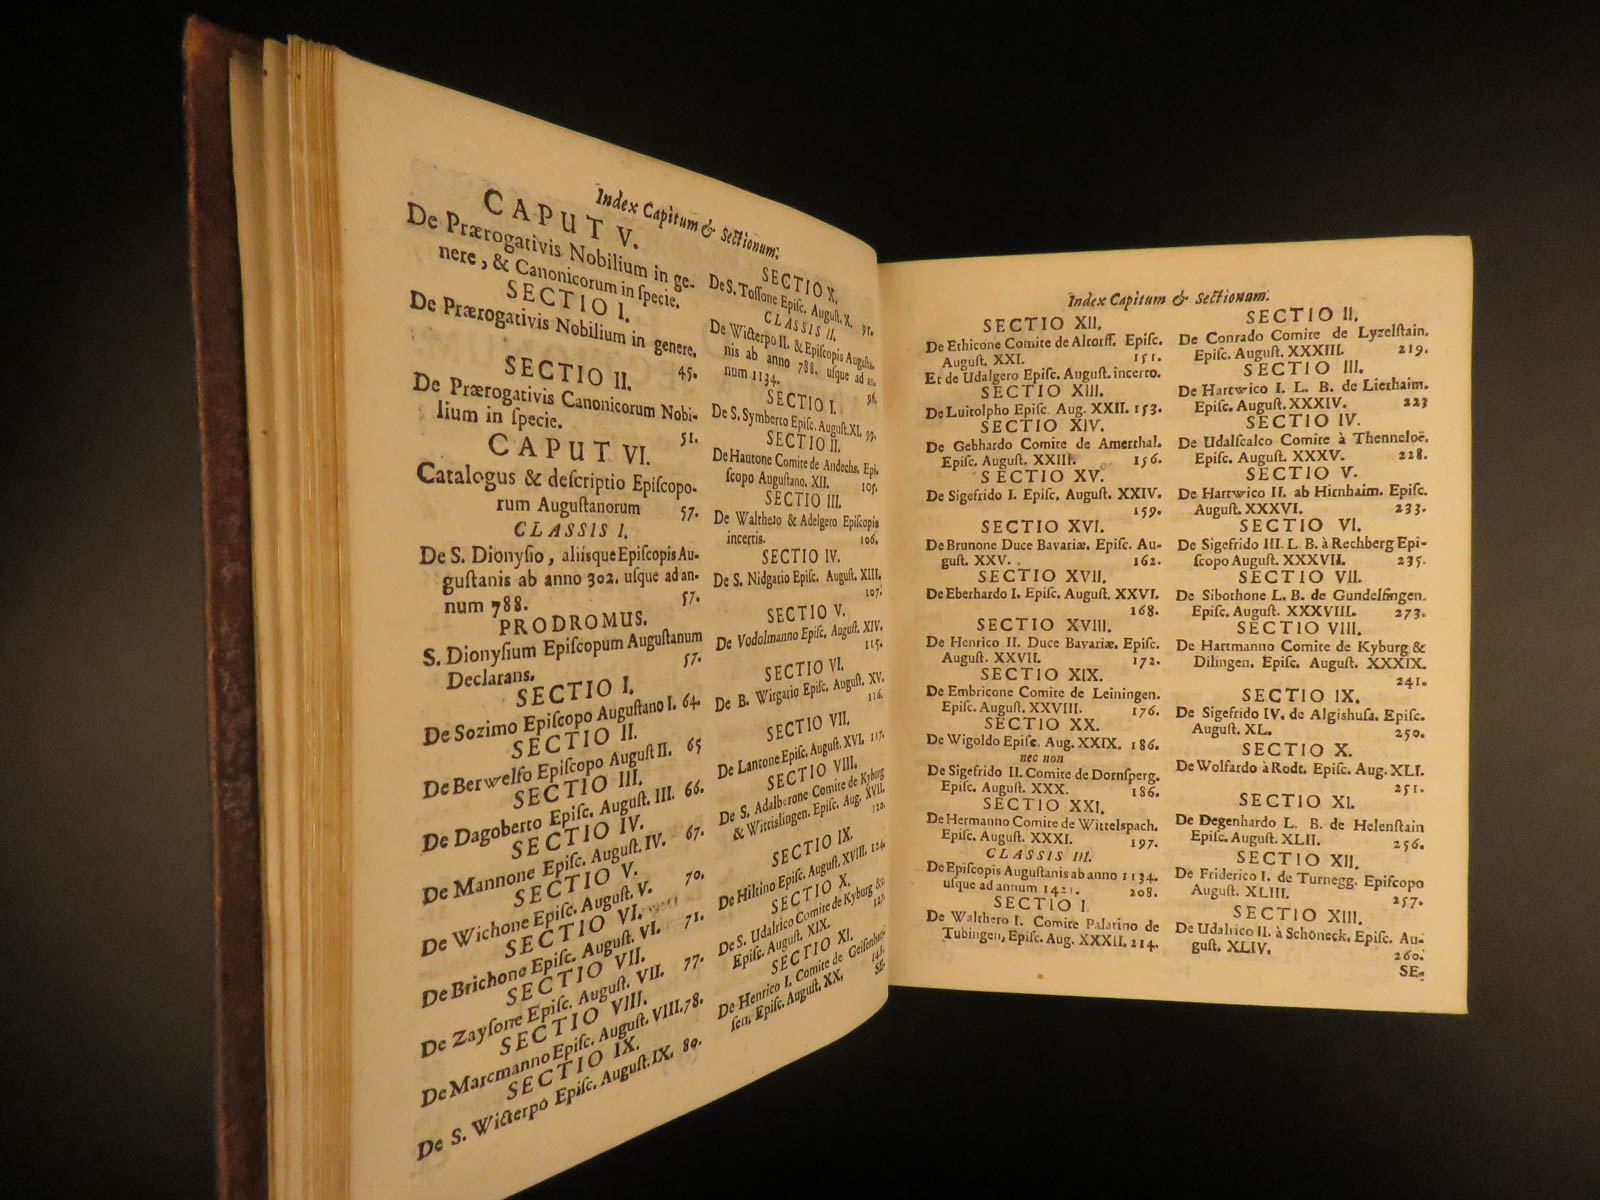 Index Capitum & Sectionum.
CAPUT V.
De Prærogativis Nobilium in ge-
nere, & Canonicorum in ſpecie.
SECTIO I.
De Prærogativis Nobilium in genere.
45.
SECTIO II.
De Prærogativis Canonicorum Nobi-
lium in ſpecie.
51.
CAPUT VI.
Catalogus & deſcriptio Epiſcopo-
rum Auguſtanorum 57.
CLASSIS I.
De S. Dionyſio, aliisque Epiſcopis Au-
guſtanis ab anno 302. uſque ad an-
num 788. 57.
PRODROMUS.
S. Dionyſium Epiſcopum Auguſtanum
Declarans. 57.
SECTIO I.
De Sozimo Epiſcopo Auguſtano I. 64.
SECTIO II.
De Berwelfo Epiſcopo Auguſt II. 65
SECTIO III.
De Dagoberto Epiſc. Auguſt. III. 66.
SECTIO IV.
De Mannone Epiſc. Auguſt. IV. 67.
SECTIO V.
De Wichone Epiſc. Auguſt. V. 70.
SECTIO VI.
De Brichone Epiſc. Auguſt. VI. 71.
SECTIO VII.
De Zayſone Epiſc. Auguſt. VII. 77.
SECTIO VIII.
De Marcmanno Epiſc. Auguſt. VIII. 78.
SECTIO IX.
De S. Wicterpô Epiſc. Auguſt. IX. 80.
SECTIO X.
De S. Toſſone Epiſc. Auguſt. X. 91.
CLASSIS II.
De Wicterpo II. & Epiſcopis Auguſta-
nis ab anno 788. uſque ad an-
num 1134. 96.
SECTIO I.
De S. Symberto Epiſc. Auguſt. XI. 99.
SECTIO II.
De Hautone Comite de Andechs, Epi-
ſcopo Auguſtano. XII. 105.
SECTIO III.
De Walthero & Adelgero Epiſcopis
incertis. 106.
SECTIO IV.
De S. Nidgario Epiſc. Auguſt. XIII.
107.
SECTIO V.
De Vodolmanno Epiſc. Auguſt. XIV.
115.
SECTIO VI.
De B. Wirgario Epiſc. Auguſt. XV.
116.
SECTIO VII.
De Lantone Epiſc. Auguſt. XVI. 117.
SECTIO VIII.
De S. Adalberone Comite de Kyburg
& Wittislingen. Epiſc. Aug. XVII.
120.
SECTIO IX.
De Hiltino Epiſc. Auguſt. XVIII. 124.
SECTIO X.
De S. Udalrico Comite de Kyburg &c
Epiſc. Auguſt. XIX.
SECTIO XI.
De Henrico I. Comite de Geiſenhau-
ſen, Epiſc. Auguſt. XX. 148.
SE-
Index Capitum & Sectionum.
SECTIO XII.
De Ethicone Comite de Altorff. Epiſc.
Auguſt. XXI. 151.
Et de Udalgero Epiſc. Auguſt. incerto.
SECTIO XIII.
De Luitolpho Epiſc. Aug. XXII. 153.
SECTIO XIV.
De Gebhardo Comite de Amerthal.
Epiſc. Auguſt. XXIII. 156.
SECTIO XV.
De Sigefrido I. Epiſc. Auguſt. XXIV.
159.
SECTIO XVI.
De Brunone Duce Bavariæ. Epiſc. Au-
guſt. XXV. 162.
SECTIO XVII.
De Eberhardo I. Epiſc. Auguſt. XXVI.
168.
SECTIO XVIII.
De Henrico II. Duce Bavariæ. Epiſc.
Auguſt. XXVII. 172.
SECTIO XIX.
De Embricone Comite de Leiningen.
Epiſc. Auguſt. XXVIII. 176.
SECTIO XX.
De Wigoldo Epiſc. Aug. XXIX. 186.
nec non
De Sigefrido II. Comite de Dornſperg.
Epiſc. Auguſt. XXX. 186.
SECTIO XXI.
De Hermanno Comite de Wittelspach.
Epiſc. Auguſt. XXXI. 197.
CLASSIS III.
De Epiſcopis Auguſtanis ab anno 1134.
uſque ad annum 1421. 208.
SECTIO I.
De Walthero I. Comite Palatino de
Tubingen, Epiſc. Aug. XXXII. 214.
SECTIO II.
De Conrado Comite de Lyzelſtain.
Epiſc. Auguſt. XXXIII. 219.
SECTIO III.
De Hartwico I. L. B. de Lierhaim.
Epiſc. Auguſt. XXXIV. 223
SECTIO IV.
De Udalſcalco Comite à Thenneloë.
Epiſc. Auguſt. XXXV. 228.
SECTIO V.
De Hartwico II. ab Hirnhaim. Epiſc.
Auguſt. XXXVI. 233.
SECTIO VI.
De Sigefrido III. L. B. à Rechberg Epi-
ſcopo Auguſt. XXXVII. 235.
SECTIO VII.
De Sibothone L. B. de Gundelfingen.
Epiſc. Auguſt. XXXVIII. 273.
SECTIO VIII.
De Hartmanno Comite de Kyburg &
Dilingen. Epiſc. Auguſt. XXXIX.
241.
SECTIO IX.
De Sigefrido IV. de Algishuſa. Epiſc.
Auguſt. XL. 250.
SECTIO X.
De Wolfardo à Rodt. Epiſc. Aug. XLI.
251.
SECTIO XI.
De Degenhardo L. B. de Helenſtain
Epiſc. Auguſt. XLII. 256.
SECTIO XII.
De Friderico I. de Turnegg. Epiſcopo
Auguſt. XLIII. 257.
SECTIO XIII.
De Udalrico II. à Schöneck. Epiſc. Au-
guſt. XLIV. 260.
SE-